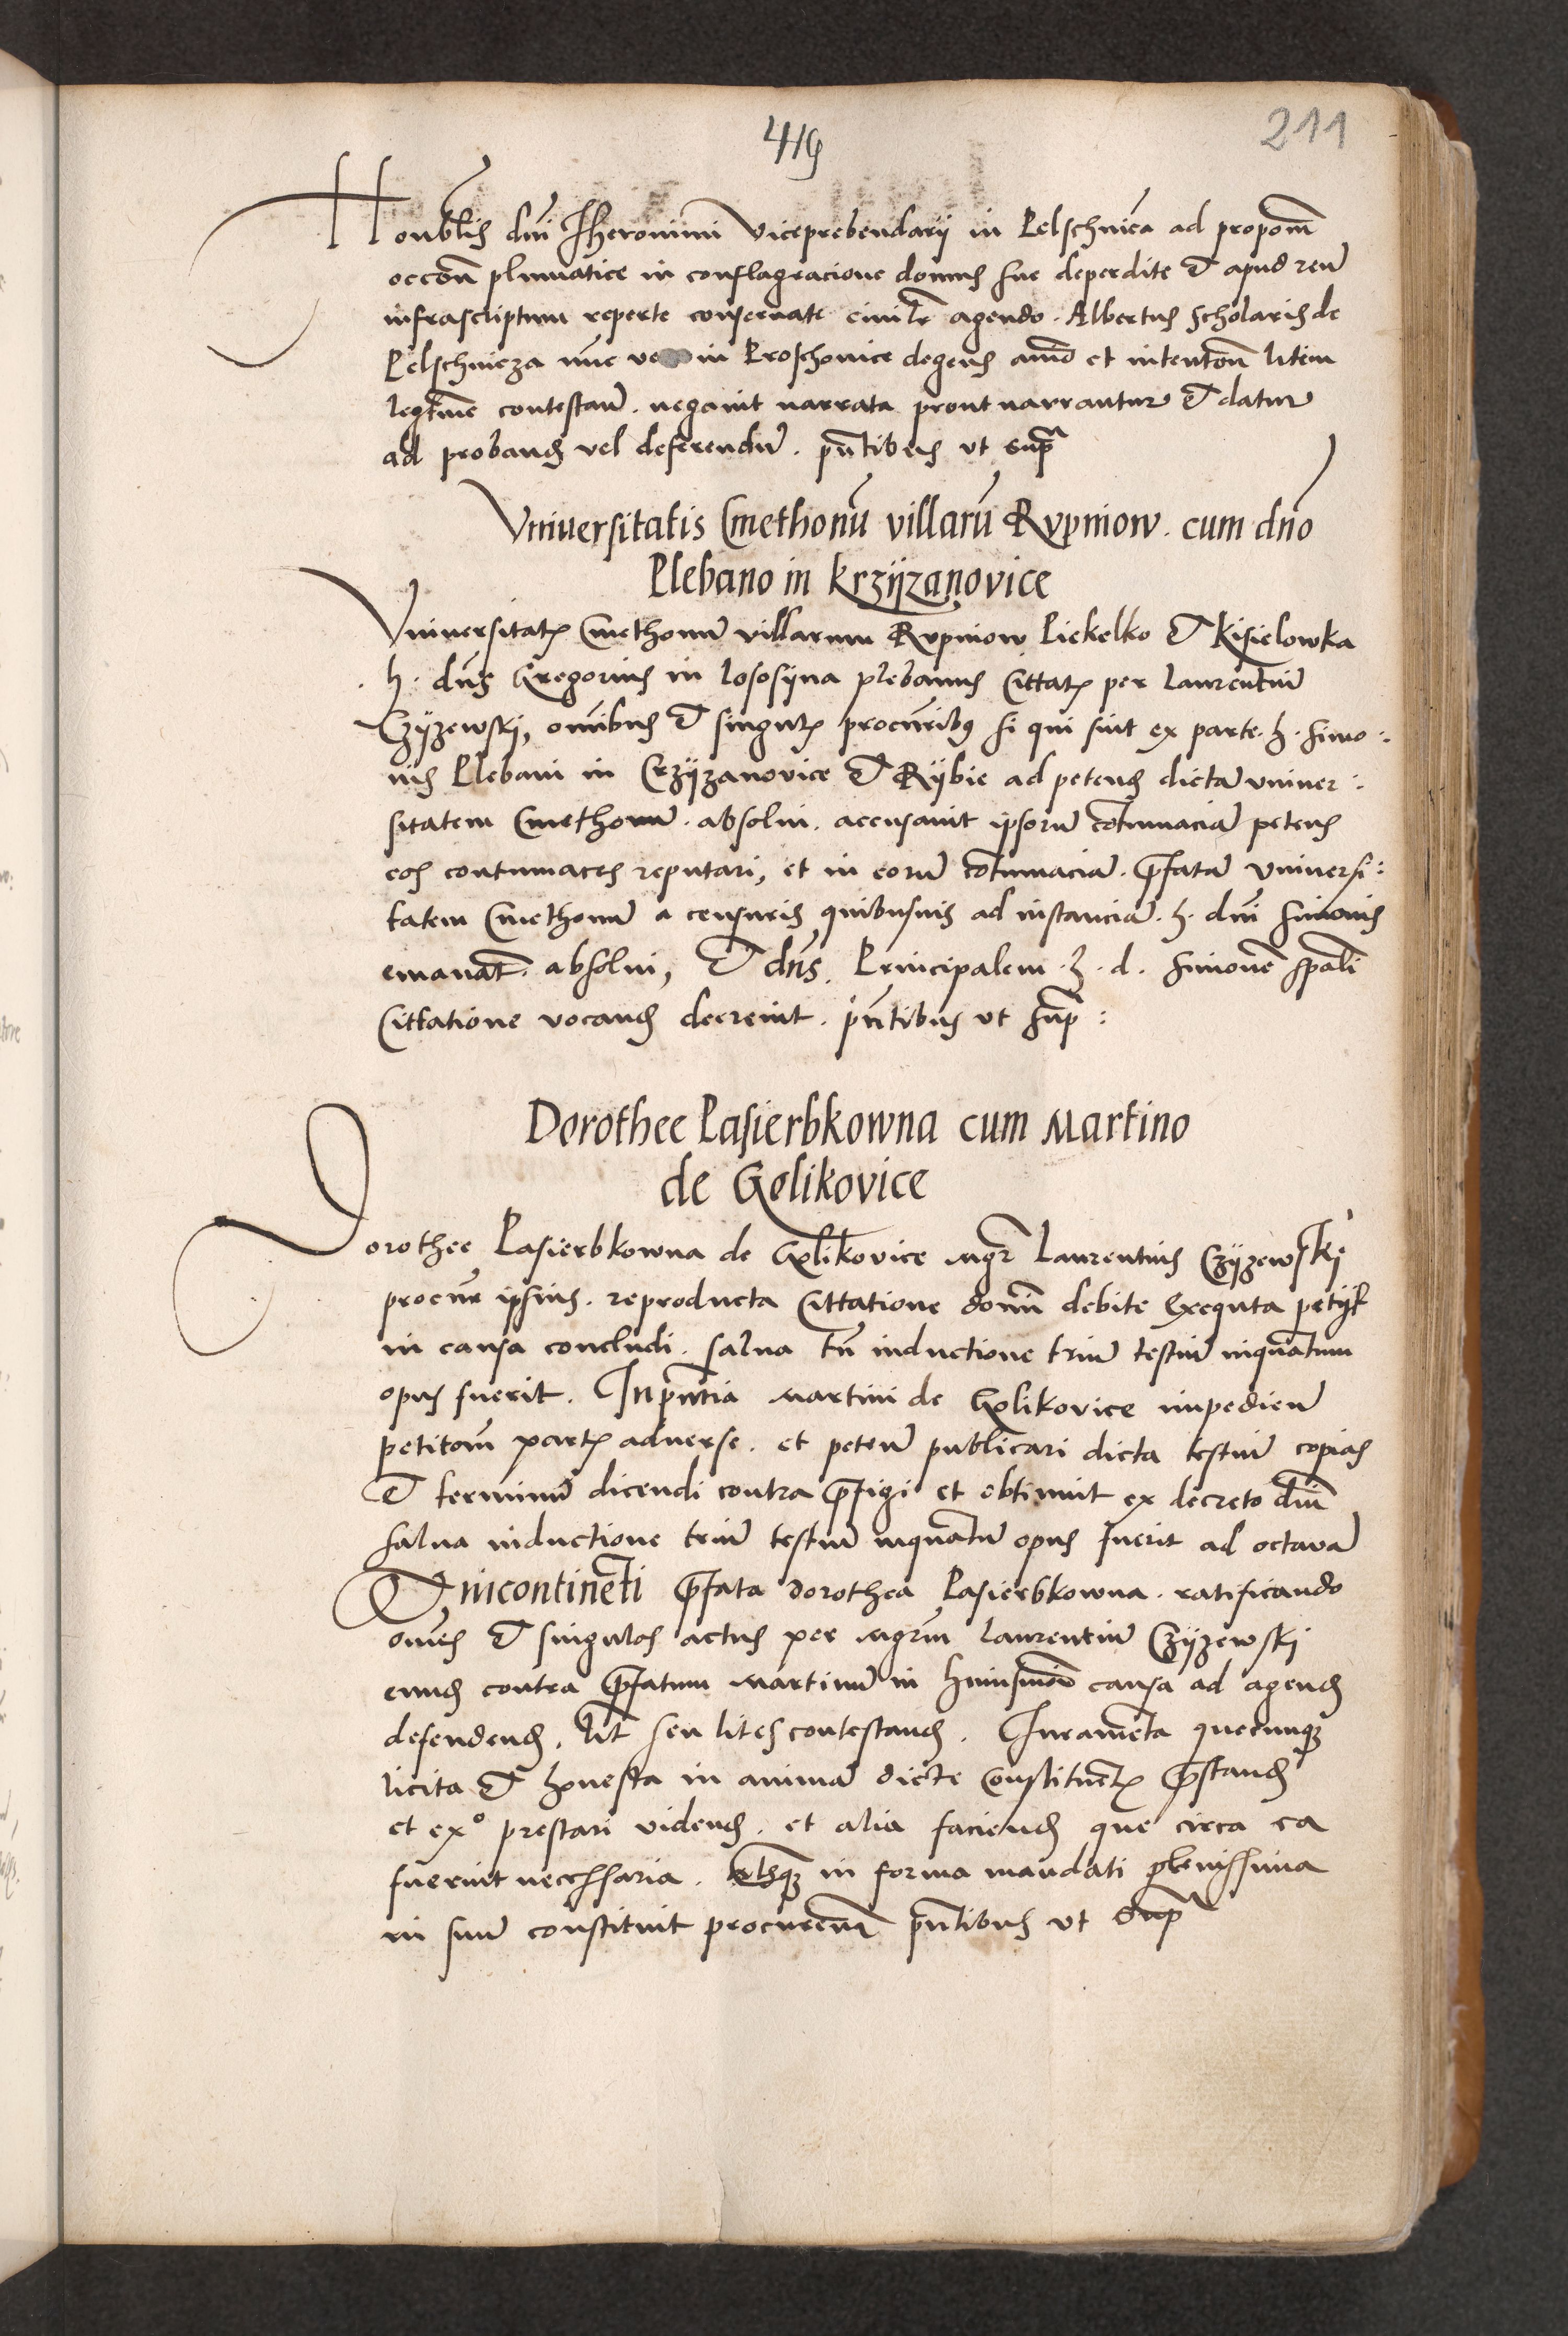 419
211
Honublis dni Hieronimi Viceprebendarij in Pelschnica ad proponm
occōn plumatice in conflagracione domus sue deperdite & apud reū
infrascriptum reperte conservate civilr agendo. Albertus Scholaris de
Pelschnicza nunc vero in Proschovice degens animo et intentōn litem
legtīme contestan̄. negavit narrata prout narrantur & datur
ad proband vel deferendū. pn̄tibus ut supra
Vniuersitatis Cmethonū villarū Rvpniow. cum dno
Plebano in Krzijzanovice
Vniuersitatis Cmethonum villarum Rvpniow Piekelko & Kisielowka
h. dn̄s Gregorius in Lososijna plebanus Cittatis per Laurentiū
Czijzewskij, omnibus & singulis procuribus si qui sint ex parte. h. Simo:
nis Plebani in Crzijzanovice & Rijbie ad petend dictā univer:
sitatem Cmethonū. absolvi. accusavit ipsorū cōtumaciā petens
eos contumaces reputari, et in eorū cōtumaciā. prefatā Vniversi:
tatem Cmethonū a censuris quibusuis ad instanciā. h. dni Simonis
emanat. absolvi, & dn̄s. Principalem. h. d. Simonē spāli
Cittatione vocand decrevit. pn̄tibus ut sup:
Dorothee Pasierbkowna cum Martino
de Golikovice
Dorothee Pasierbkowna de Golikovice Mgr Laurentius Czijzewskij
procur ipsius. reproducta Cittatione domi debite exequta petijt
in causa concludi. salva tn̄ inductione triū testiū inquantum
opus fuerit. In pn̄tia Martini de Golikovice impedien̄
petitōm partis adverse. et peten̄ publicari dicta testiū copias
& terminū dicendi contra prefigi et obtinuit ex decreto dni
salva inductione triū testiū inquantū opus fuerit ad octavā
& incontinēti prefata Dorothea Pasierbkowna. ratificando
omnes & singulos actus per Mgrm Laurentiū Czijzewskij
eund contra prefatum Martinū in huiusmōi causa ad agend
defendend, lit seu lites contestand. Iuramēta quecunque
licita & honesta in animā dicte Constituentis prestand
et exo prestari vidend. et alia faciend que circa ea
fuerint necessaria. in forma mandati plenissima
in suū constituit procurem pn̄tibus ut supra